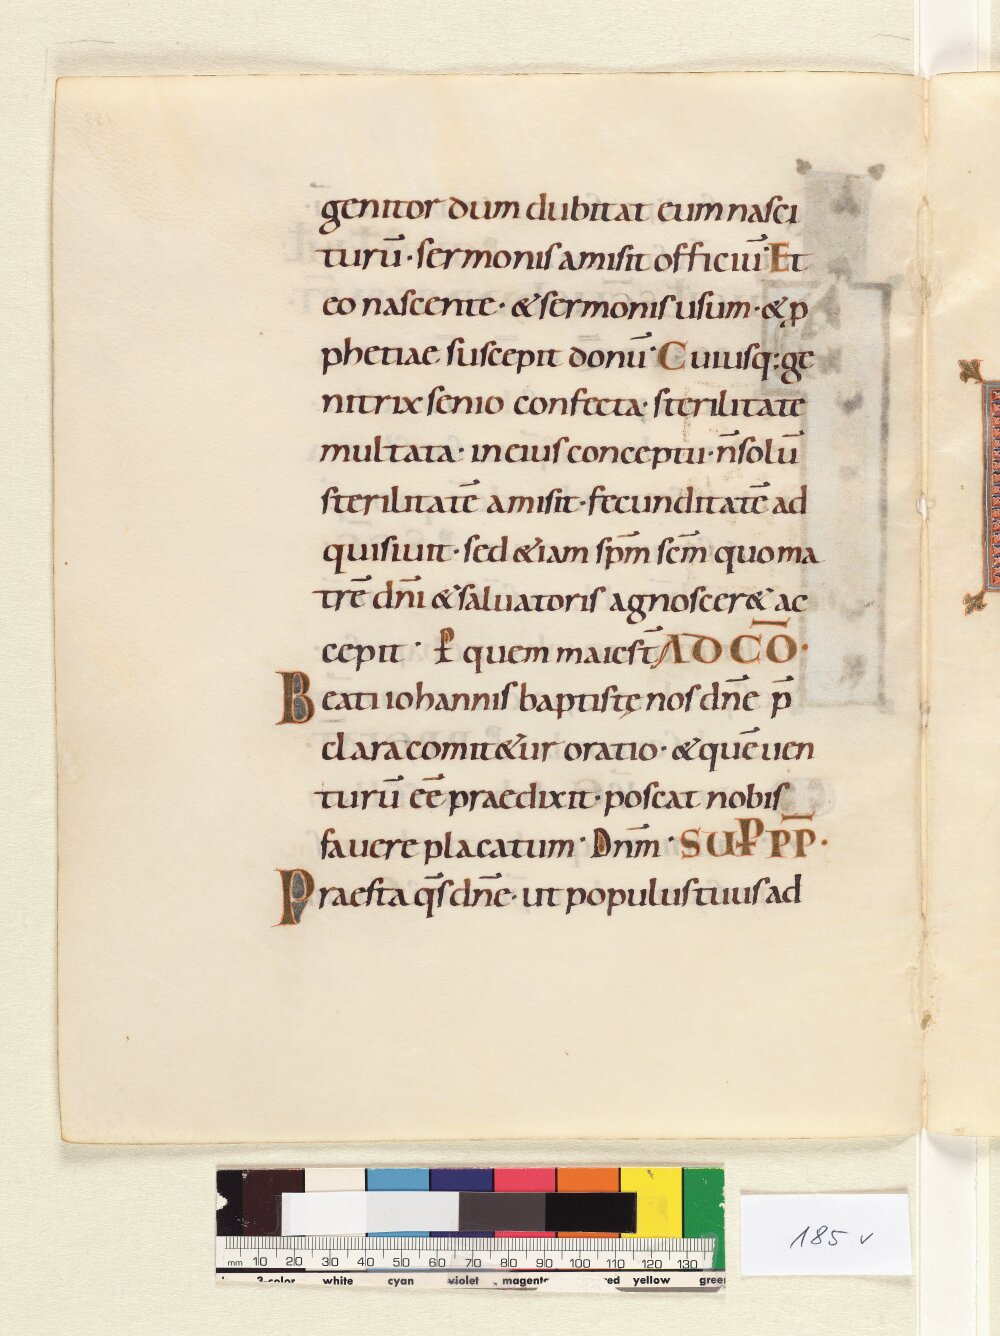 genitor dum dubitat eum nasci
turū· sermonis amisit officiū· Et
eo nascente· & sermonis usum· & p
phetiae suscepit donū· Cuiusq: ge
nitrix senio confecta· sterilitate
multata· in eius conceptu· n̄ solū
sterilitatē amisit· fecunditatē ad
quisiuit· sed &iam sp̄m sc̄m quo ma
trē dn̄i & saluatoris agnoscer& ac
cepit· ꝑ quem maiest̄ AD CŌ·
Beati iohannis baptistę nos dn̄e p̄
clara comit&ur oratio· & quē uen
turū eē praedixit· poscat nobis
fauere placatum· Dn̄m· SUꝐ PP̄·
Praesta q̄s dn̄e· ut populus tuus ad
185 v
mm 10 20 30 40 50 60 70 80 90 100 110 120 130
3-color white cyan violet magenta red yellow green